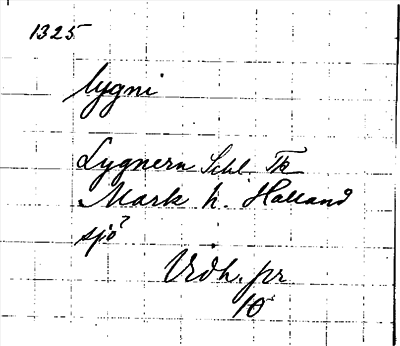 1325
lygni
Lygnern Schl. Tk
Mark h. Halland
sjö?
Vrdh. pr
10